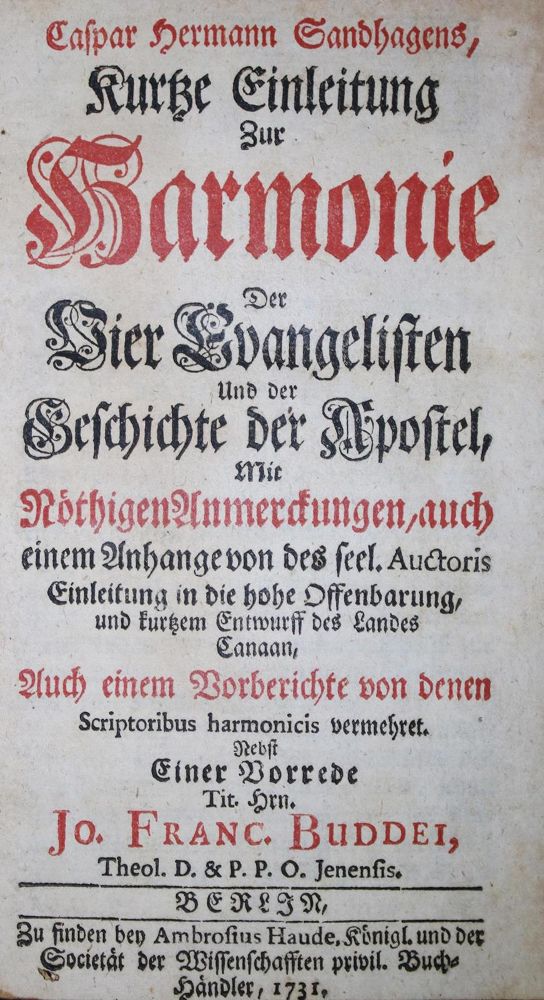 Caspar Hermann Sandhagens,
Kurtze Einleitung
Zur
Harmonie
Der
Vier Evangelisten
Und der
Geschichte der Apostel,
Mit
Nöthigen Anmerckungen/ auch
einem Anhange von des seel. Auctoris
Einleitung in die hohe Offenbarung,
und kurtzem Entwurff des Landes
Canaan,
Auch einem Vorberichte von denen
Scriptoribus harmonicis vermehret.
Nebst
Einer Vorrede
Tit. Hrn.
JO. FRANC. BUDDEI,
Theol. D. & P. P. O. Jenensis.
BERLIN,
Zu finden bey Ambrosius Haude, Königl. und der
Societät der Wissenschafften privil. Buch-
Händler, 1731.